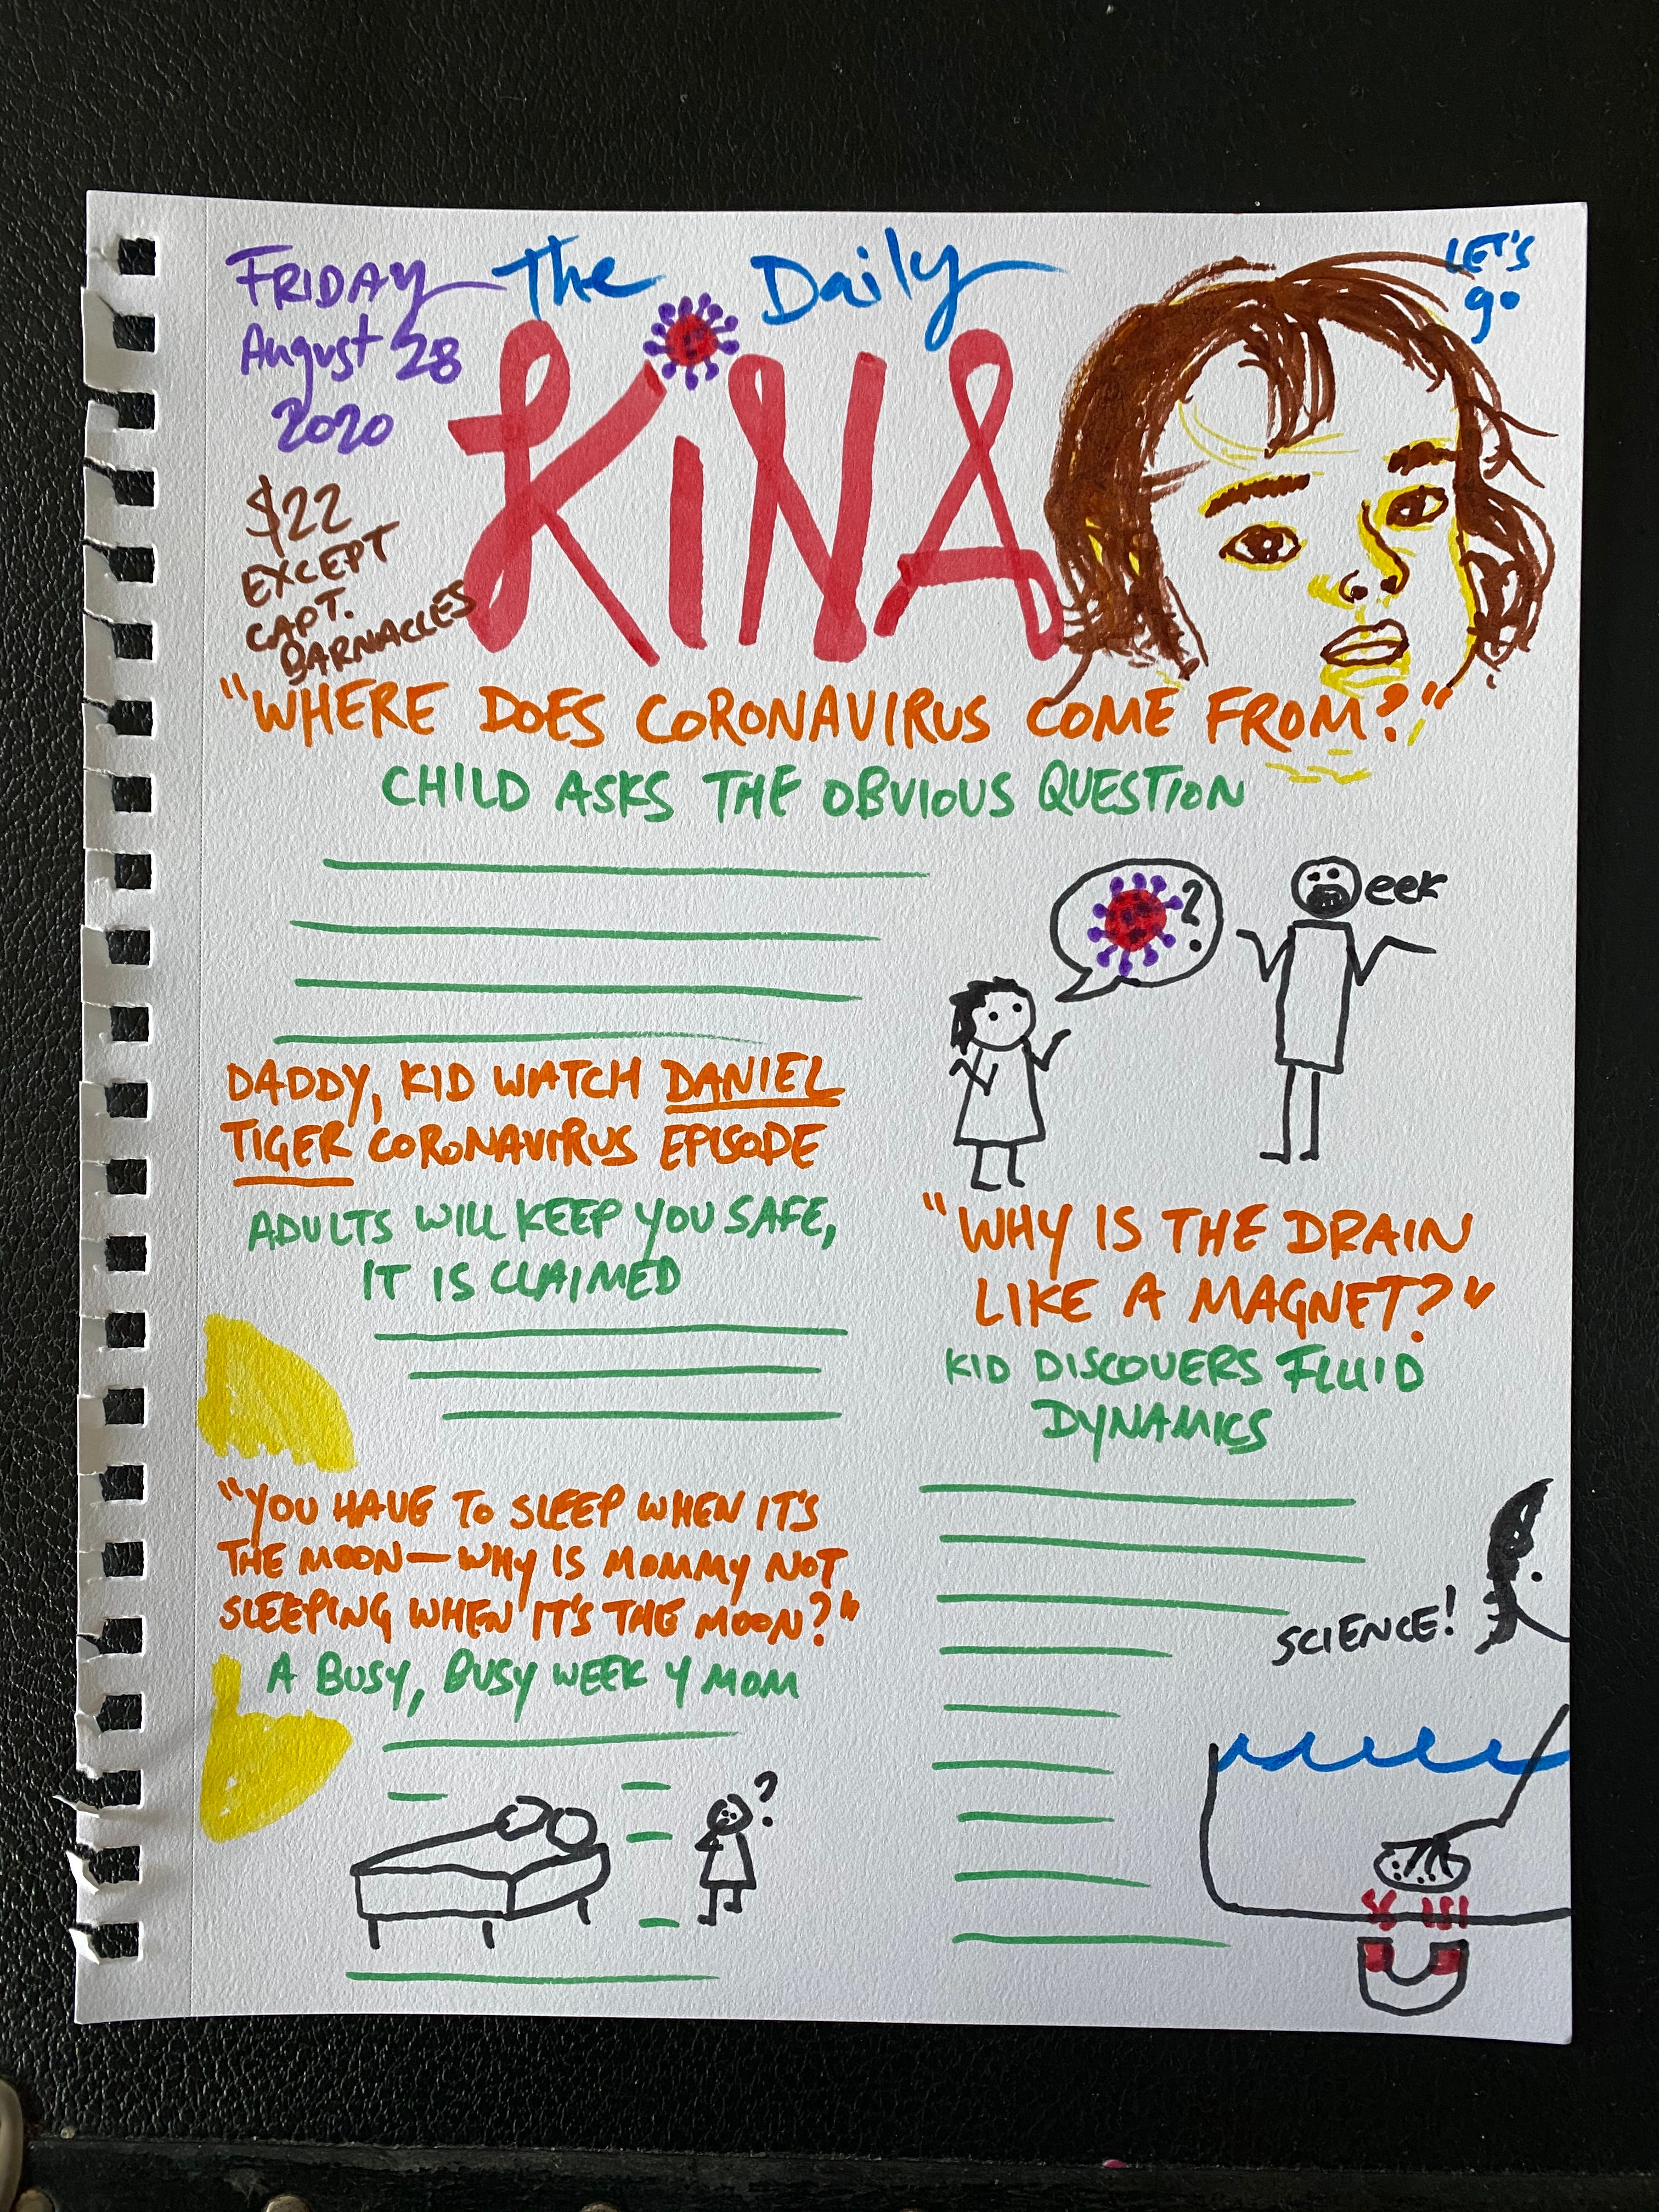 FRIDAY
August 28
2020
The Daily
KINA
LET'S
go
$22
EXCEPT
CAPT.
BARNACLES
"WHERE DOES CORONAVIRUS COME FROM?"
CHILD ASKS THE OBVIOUS QUESTION
?
eek
DADDY, KID WATCH DANIEL
TIGER CORONAVIRUS EPISODE
ADULTS WILL KEEP YOU SAFE,
IT IS CLAIMED
"YOU HAVE TO SLEEP WHEN IT'S
THE MOON—WHY IS MOMMY NOT
SLEEPING WHEN IT'S THE MOON?"
A BUSY, BUSY WEEK 4 MOM
?
"WHY IS THE DRAIN
LIKE A MAGNET?"
KID DISCOVERS FLUID
DYNAMICS
SCIENCE!